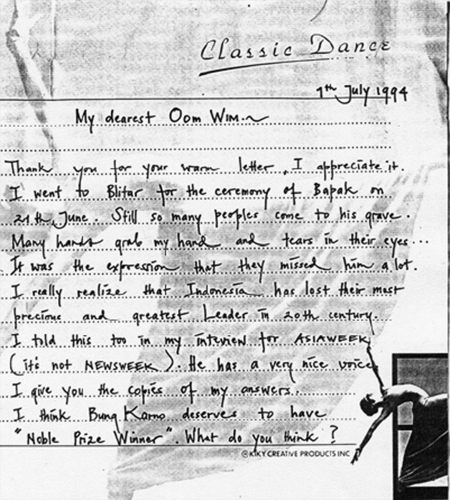 Classic Dance
7th July 1994
My dearest Oom WIM~
Thank you for your warm letter, I appreciate it.
I went to Blitar for the ceremony of Bapak on
21th June. Still so many peoples come to his grave.
Many hands grab my hand and tears in their eyes...
It was the expression that they missed him a lot.
I really realize that Indonesia has lost their most
precious and greatest Leader in 20th century.
I told this too in my interview for ASIAWEEK
(it's not NEWSWEEK). He has a very nice voice
I give you the copies of my answers.
I think Bung Karno deserves to have
"Noble Prize Winner". What do you think?
© KIKY CREATIVE PRODUCTS INC